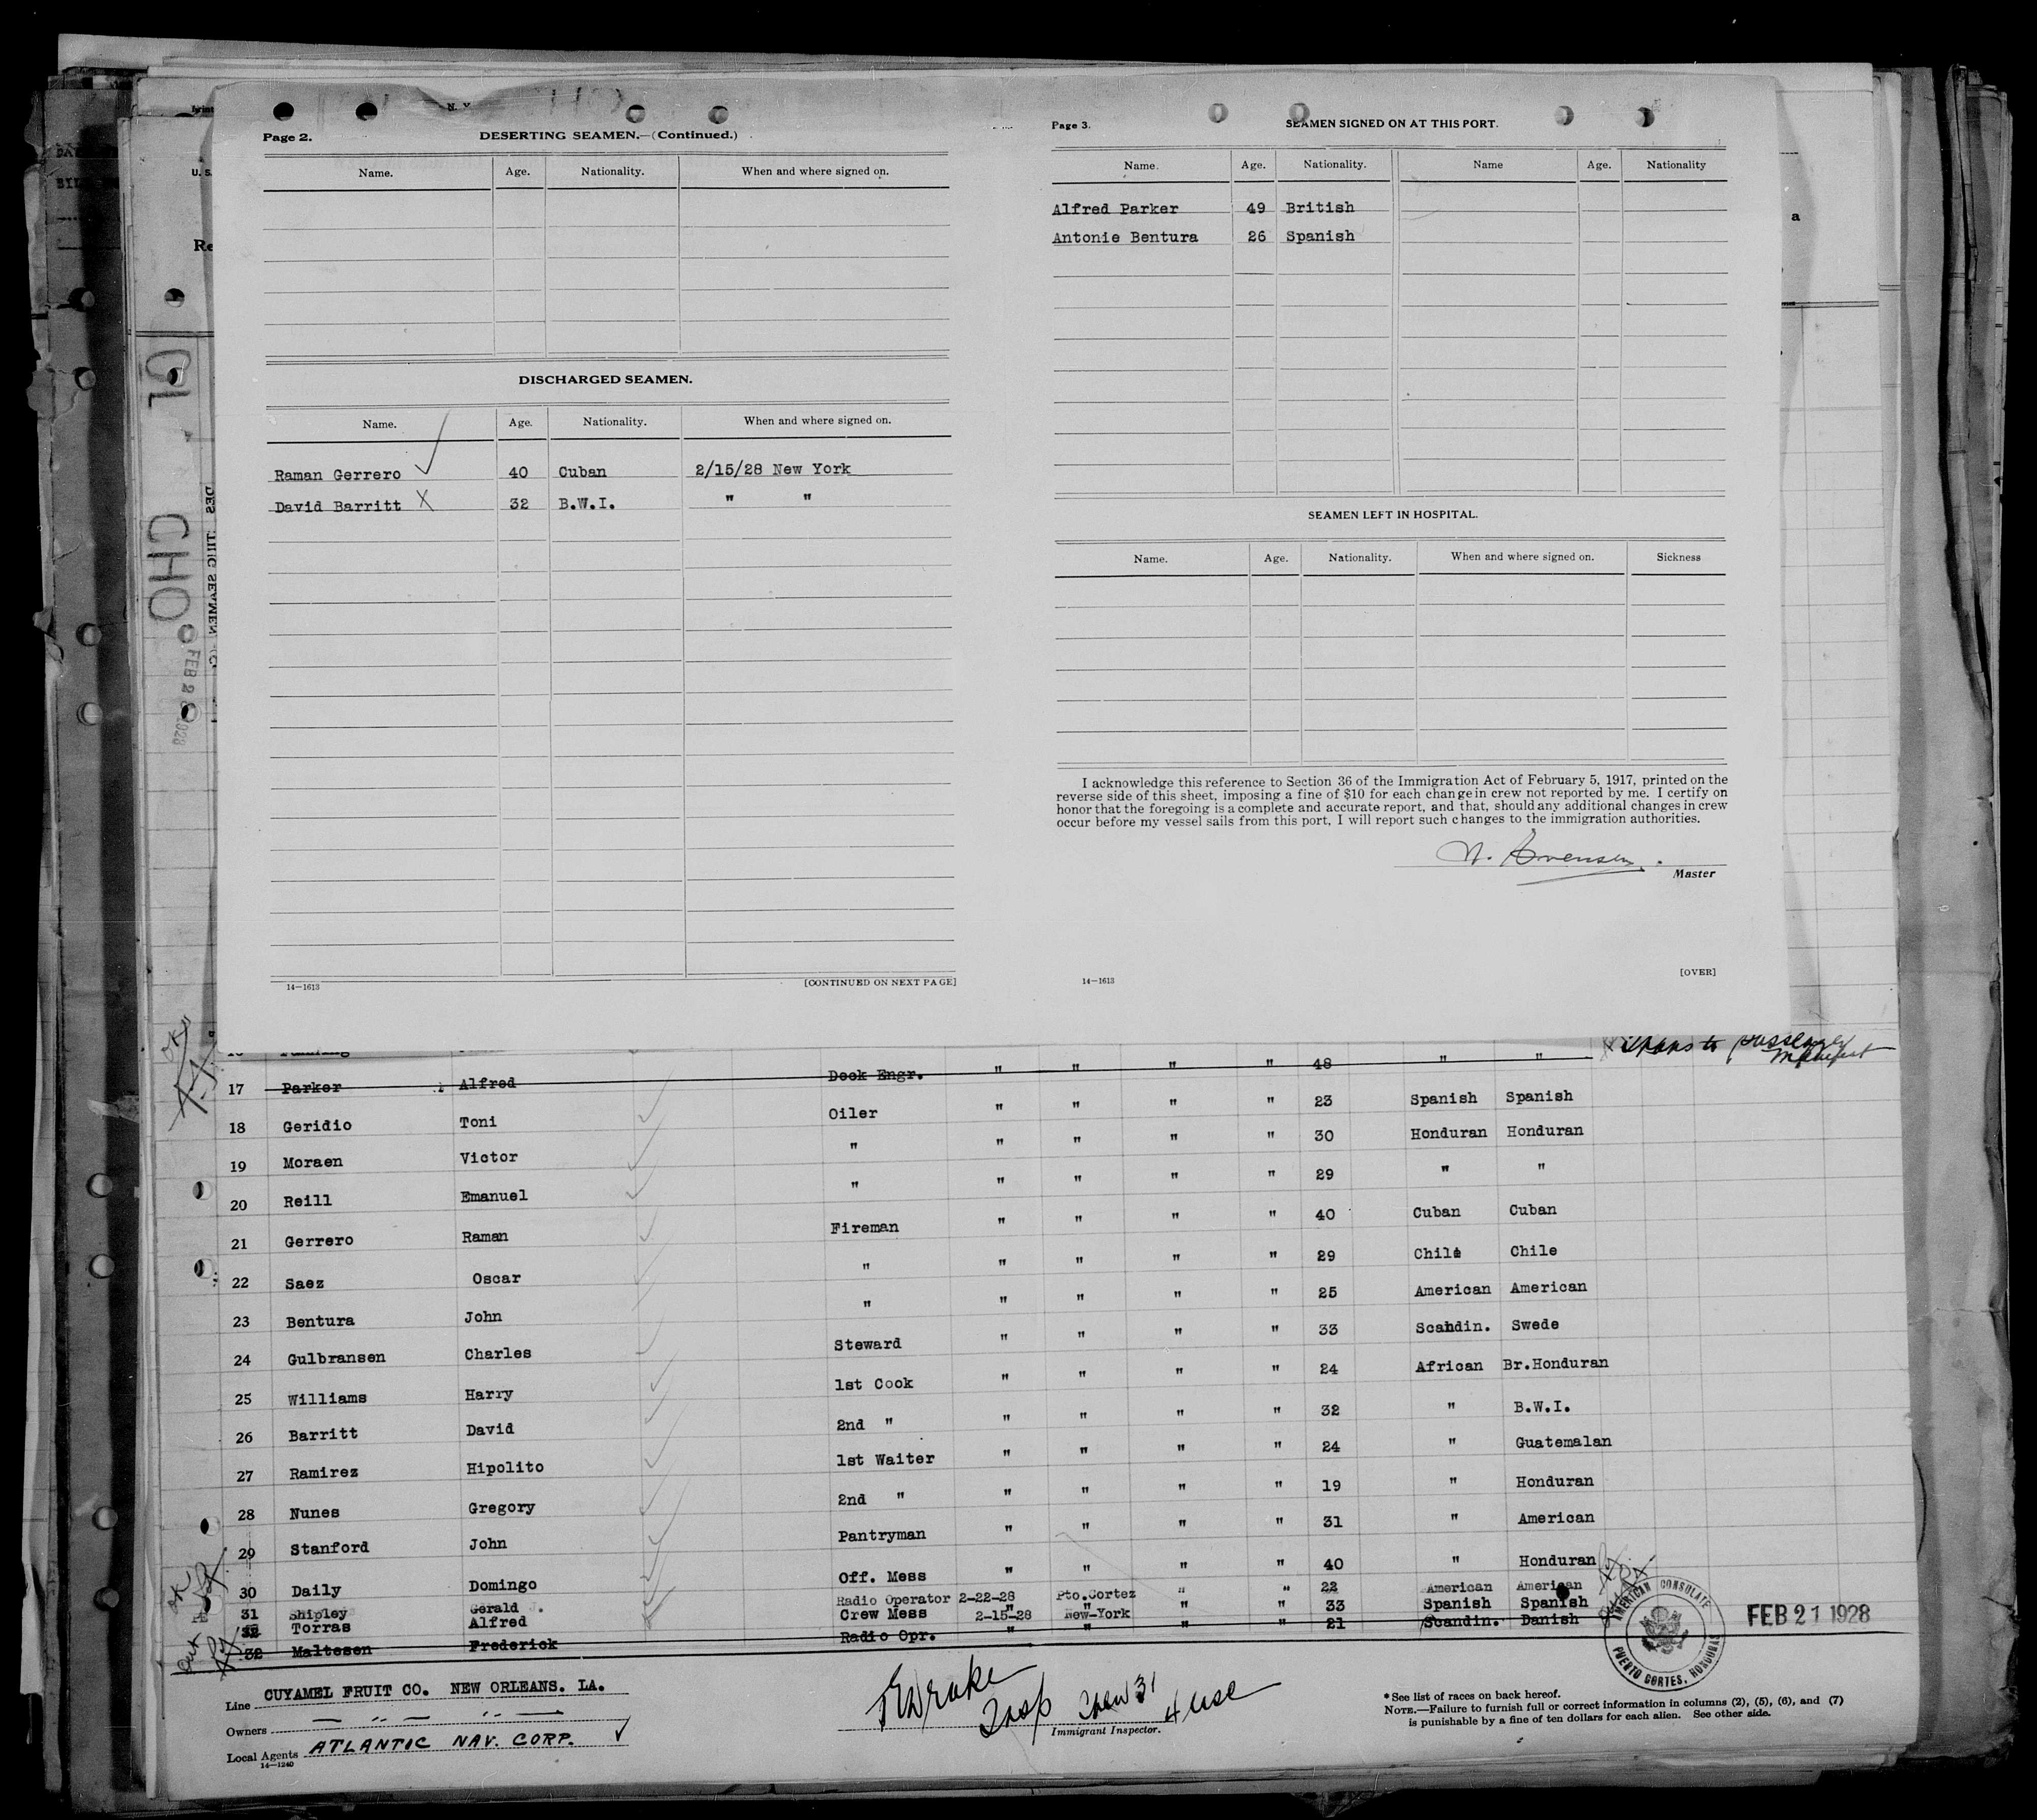 Page 2.
DESERTING SEAMEN.—(Continued.)
Name. Age. Nationality. When and where signed on.
DISCHARGED SEAMEN.
Name. Age. Nationality. When and where signed on.
Raman Gerrero ✓ 40 Cuban 2/15/28 New York
David Barritt X 32 B.W.I. " "
14—1613 [CONTINUED ON NEXT PAGE]
Page 3.
SEAMEN SIGNED ON AT THIS PORT.
Name. Age. Nationality. Name Age. Nationality
Alfred Parker 49 British
Antonie Bentura 26 Spanish
SEAMEN LEFT IN HOSPITAL.
Name. Age. Nationality. When and where signed on. Sickness
I acknowledge this reference to Section 36 of the Immigration Act of February 5, 1917, printed on the
reverse side of this sheet, imposing a fine of $10 for each change in crew not reported by me. I certify on
honor that the foregoing is a complete and accurate report, and that, should any additional changes in crew
occur before my vessel sails from this port, I will report such changes to the immigration authorities.
Master
14—1613 [OVER]
GL CHO
FEB 2 1928
17 Parker Alfred Deck Engr. " " " " 48 " "
18 Geridio Toni Oiler " " " " 23 Spanish Spanish
19 Moraen Victor " " " " " 30 Honduran Honduran
20 Reill Emanuel " " " " " 29 " "
21 Gerrero Raman Fireman " " " " 40 Cuban Cuban
22 Saez Oscar " " " " " 29 Chile Chile
23 Bentura John " " " " " 25 American American
24 Gulbransen Charles Steward " " " " 33 Scandin. Swede
25 Williams Harry 1st Cook " " " " 24 African Br.Honduran
26 Barritt David 2nd " " " " " 32 " B.W.I.
27 Ramirez Hipolito 1st Waiter " " " " 24 " Guatemalan
28 Nunes Gregory 2nd " " " " " 19 " Honduran
29 Stanford John Pantryman " " " " 31 " American
30 Daily Domingo Off. Mess " " " " 40 " Honduran
31 Shipley Gerald J. Radio Operator 2-22-28 Pto.Cortez " " 22 American American
32 Torras Alfred Crew Mess 2-15-28 New-York " " 33 Spanish Spanish
32 Maltesen Frederick Radio Opr. " " " " 21 Scandin. Danish
AMERICAN CONSULATE
PUERTO CORTES, HONDURAS
FEB 21 1928
Line CUYAMEL FRUIT CO. NEW ORLEANS. LA.
Owners — " — " —
Local Agents ATLANTIC NAV. CORP. ✓
14—1240
Insp
Immigrant Inspector.
*See list of races on back hereof.
NOTE.—Failure to furnish full or correct information in columns (2), (5), (6), and (7)
is punishable by a fine of ten dollars for each alien. See other side.